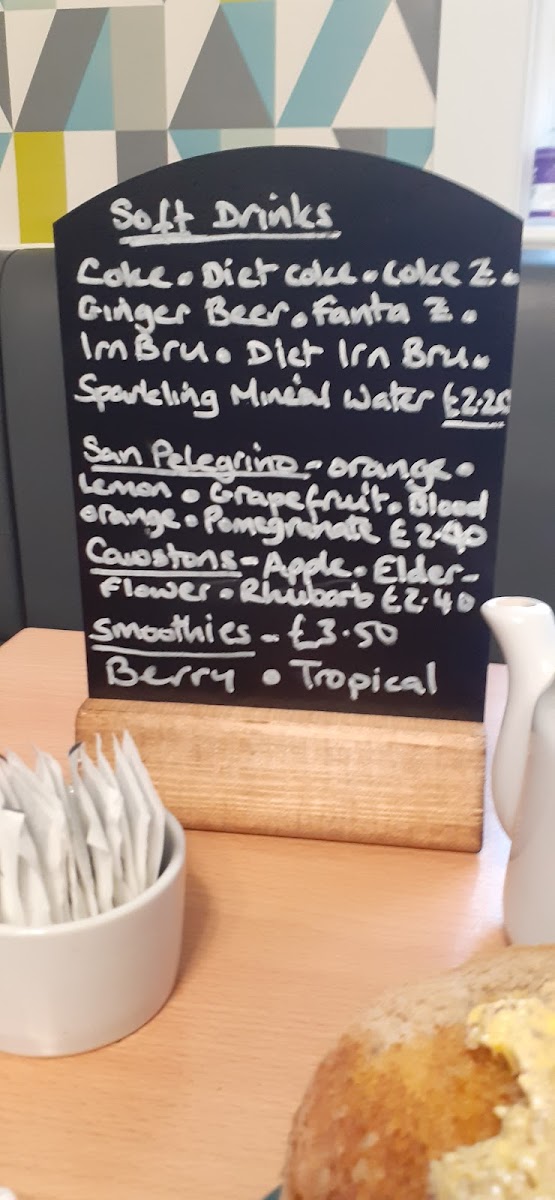 Soft Drinks
Coke • Diet coke • Coke Z •
Ginger Beer • Fanta Z •
Irn Bru • Diet Irn Bru •
Sparkling Mineral Water £2.20
San Pelegrino - orange •
Lemon • Grapefruit • Blood
orange • Pomegranate £2.40
Cawstons - Apple • Elder-
Flower • Rhubarb £2.40
Smoothies - £3.50
Berry • Tropical